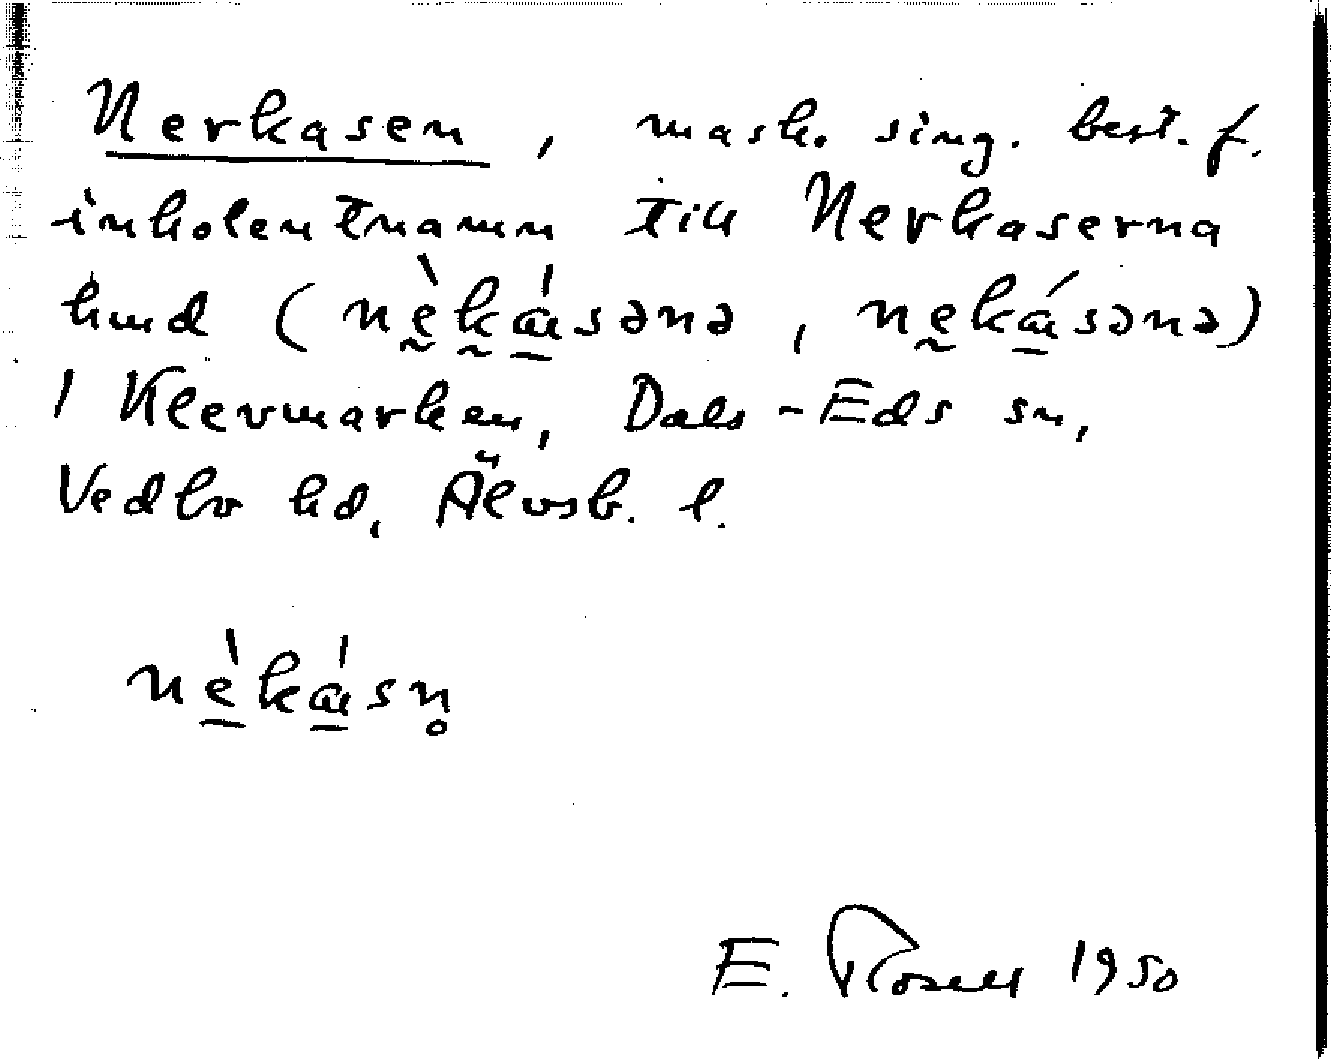 Nerkasen, mask. sing. best. f.
inbolentnamn till Nerkaserna
hmd (nèkásənə, nekásənə)
i Kleevmarken, Dals-Eds sn,
Vedbo hd, Älvsb. l.
nèkásn̥
E. Rosell 1950